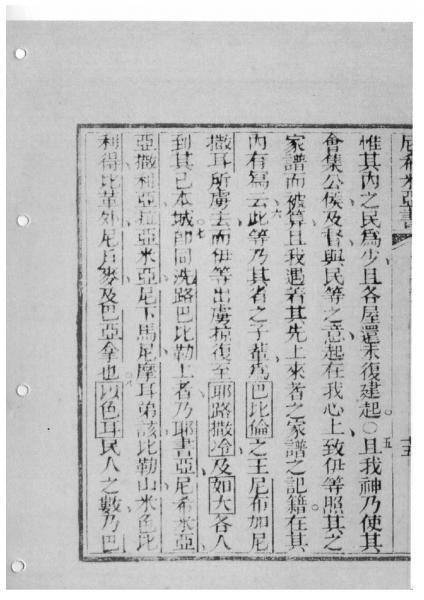 尼希米亞書
惟其內之民為少且各屋還未復建起○五且我神乃使其
會集公侯及督與民等之意起在我心上致伊等照其之
家譜而被算且我遇著其先上來者之家譜之記籍在其
內有寫云六此等乃其省之子輩為巴比倫之王尼布加尼
撒耳所虜去而伊等出虜掠復至耶路撒冷及如大各人
到其己本城七即同洗路巴比勒上者乃耶書亞尼希米亞
亞撒利亞拉亞米亞尼下馬尼摩耳弟該比勒山米色比
利得比革外尼戶麥及巴亞拿也八以色耳民人之數乃巴